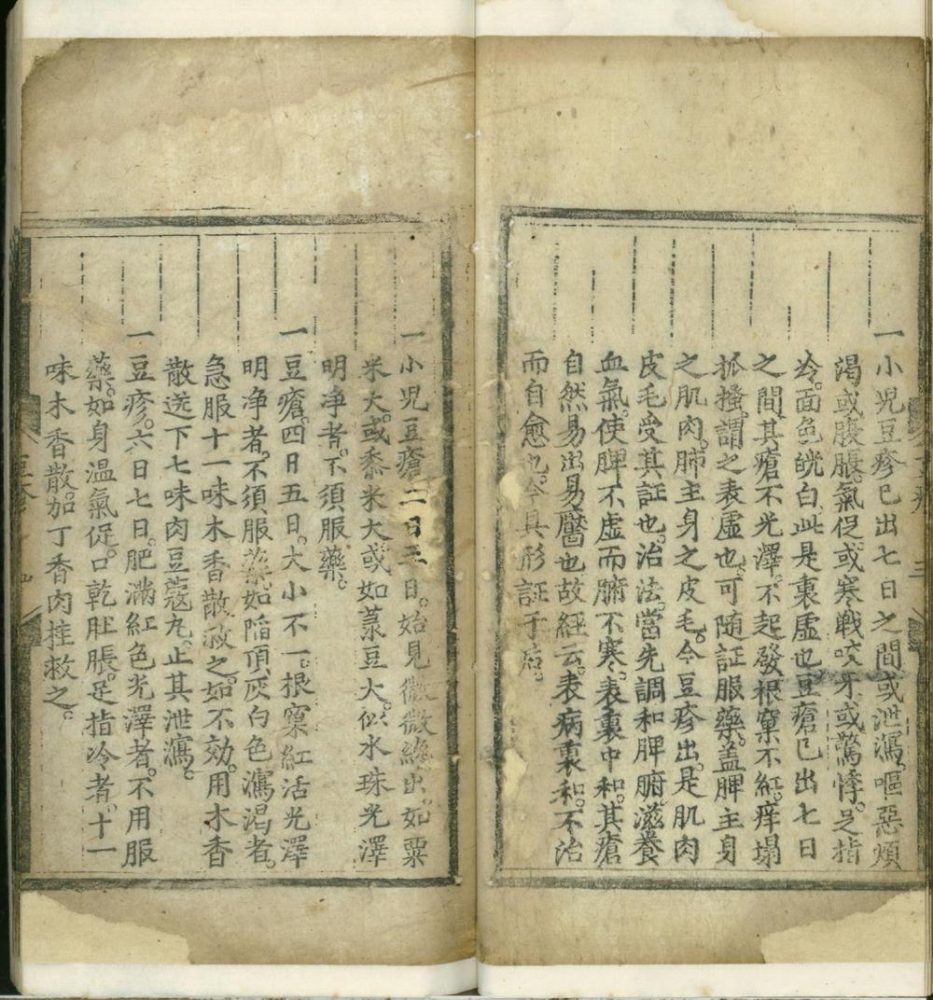 一小児豆疹已出七日之間或泄瀉嘔惡煩
渴或腹脹氣促或寒戰咬牙或驚悸足指
冷面色㿠白此是裏虛也豆瘡已出七日
之間其瘡不光澤不起發根窠不紅痒塌
抓搔謂之表虛也可随証服藥盖脾主身
之肌肉肺主身之皮毛今豆疹出是肌肉
皮毛受其証也治法當先調和脾腑滋養
血氣使脾不虛而腑不寒表裏中和其瘡
自然易出易靨也故經云表病裏和不治
而自愈也今具形証于后
一小児豆瘡二日三日始見微微線出如粟
米大或黍米大或如菉豆大似水珠光澤
明净者不須服藥
一豆瘡四日五日大小不一根窠紅活光澤
明净者不須服藥如陷頂灰白色瀉渴者
急服十一味木香散救之如不効用木香
散送下七味肉豆蔻丸止其泄瀉
一豆疹六日七日肥滿紅色光澤者不用服
藥如身温氣促口乾肚脹足指冷者十一
味木香散加丁香肉桂救之
豆疹
三
四